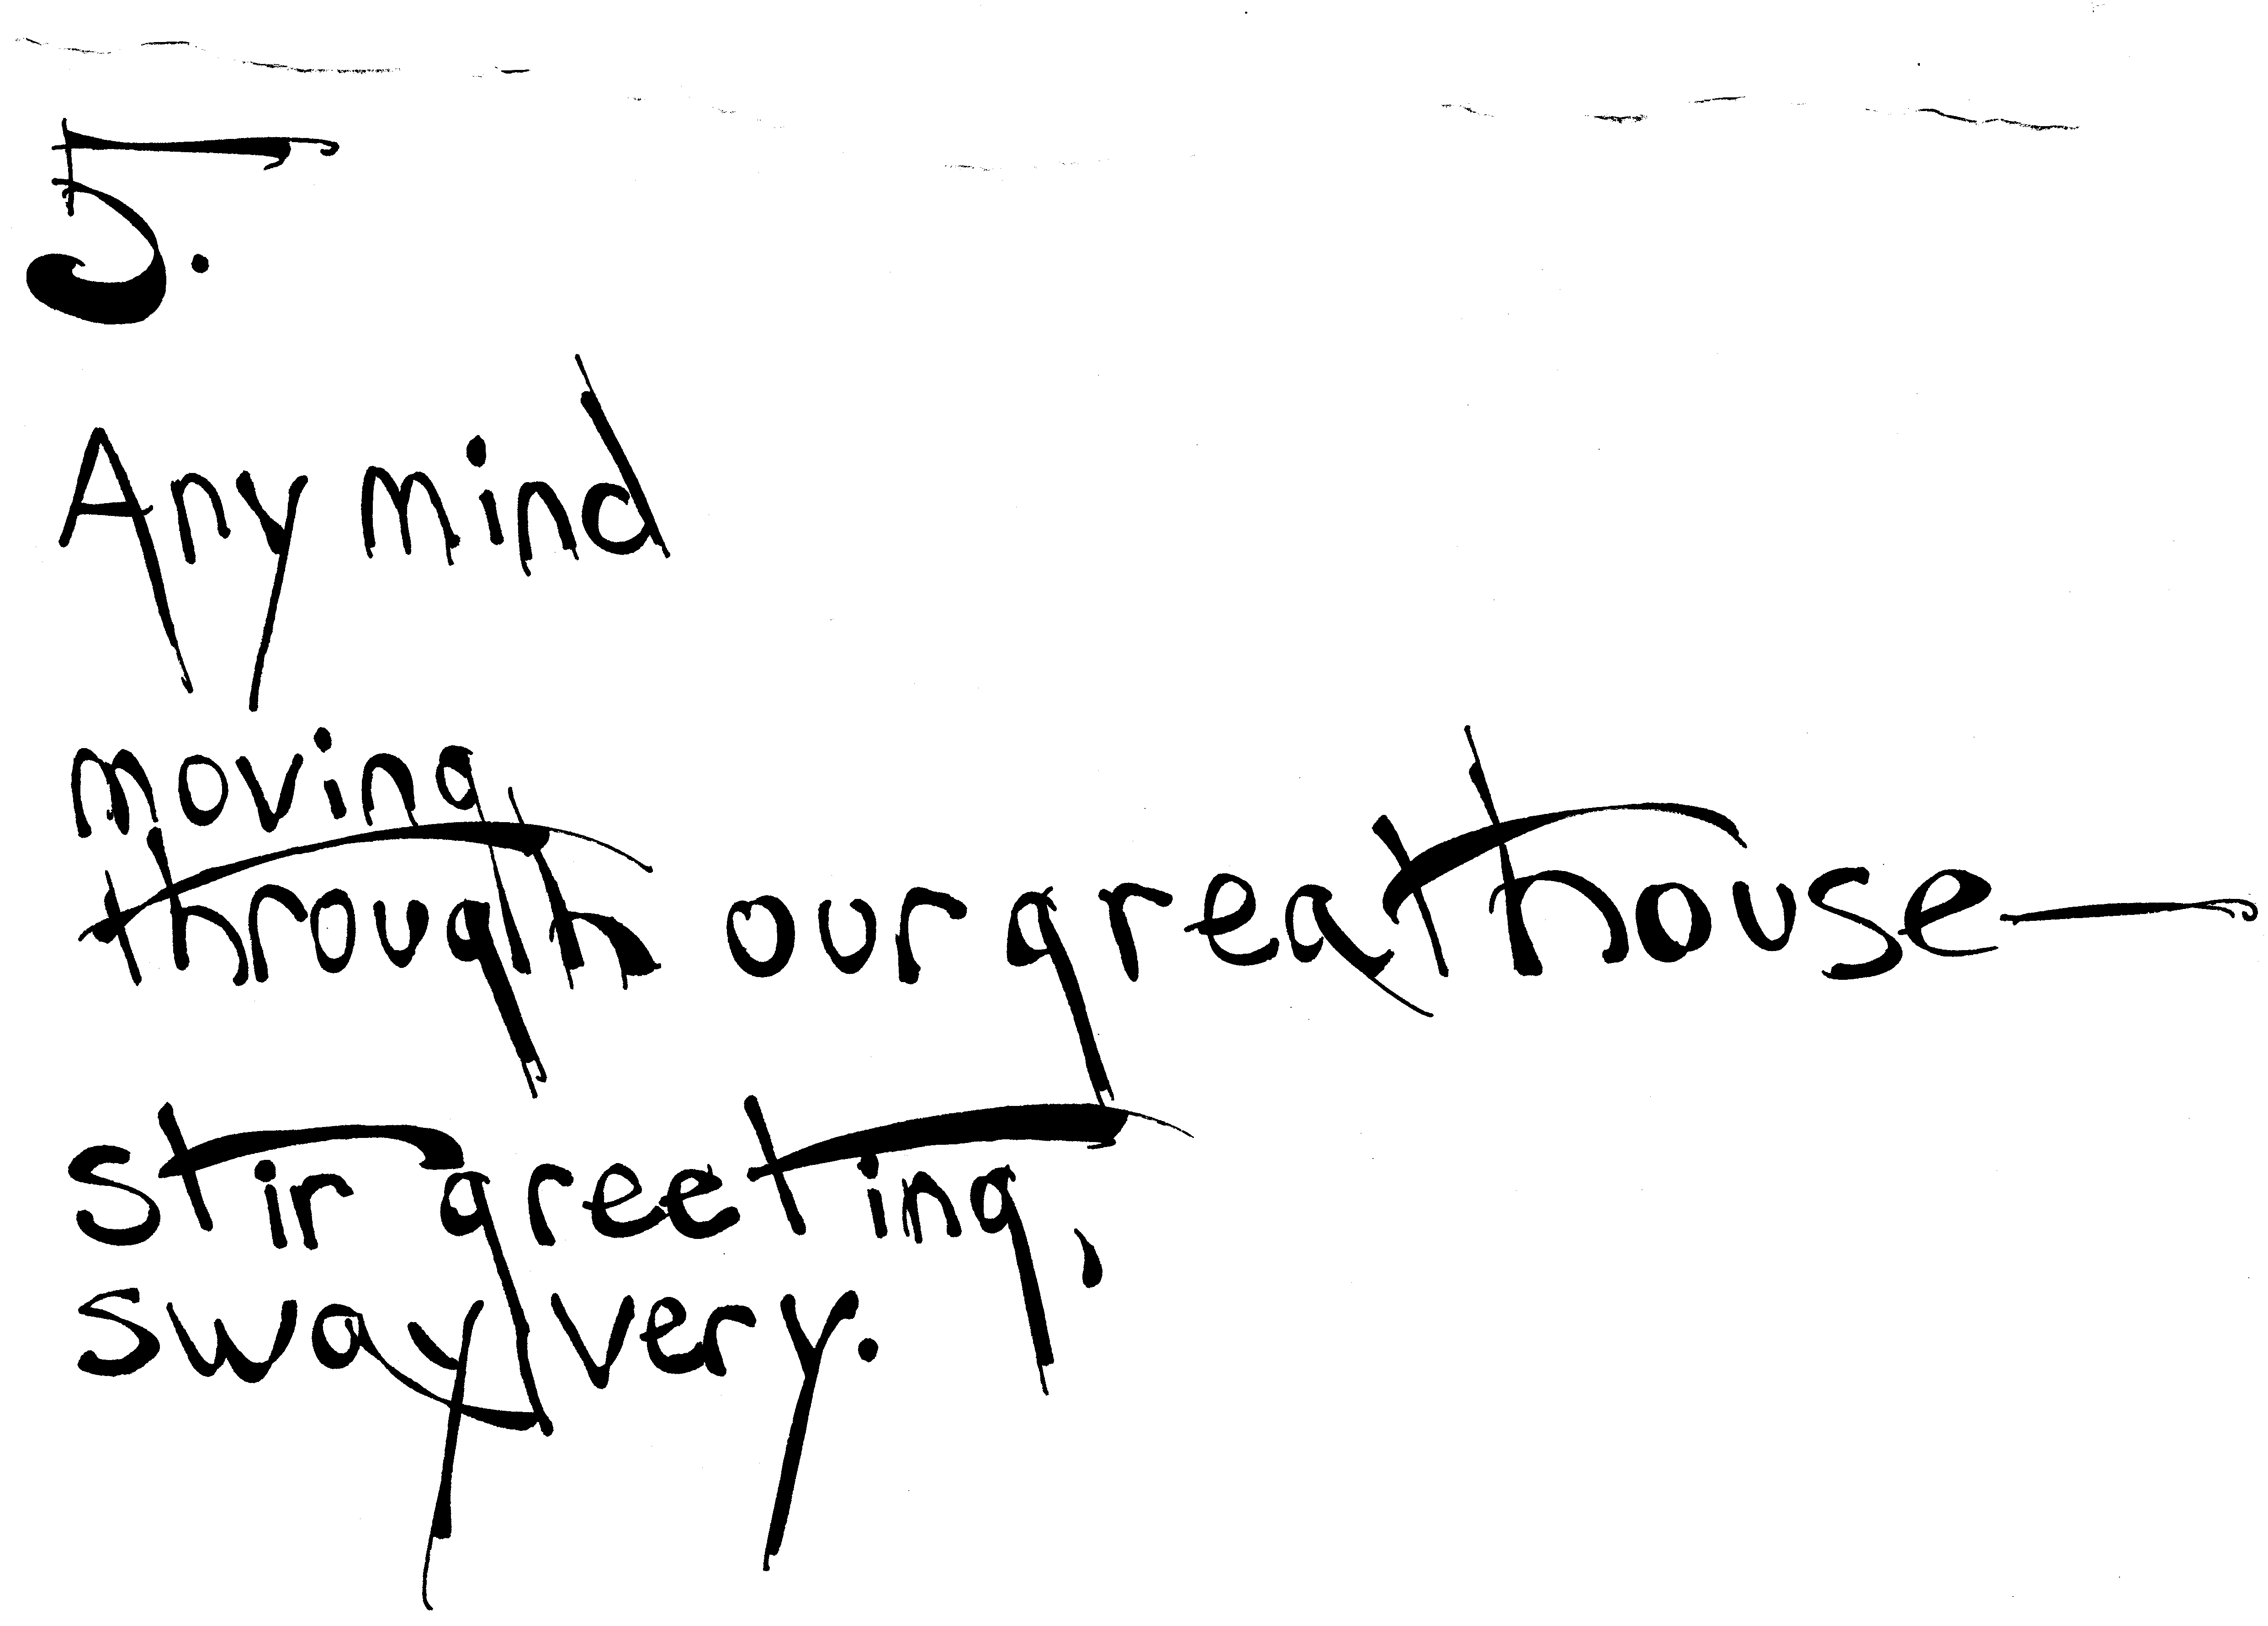 5.
Any mind
moving
through our great house—
Stir greeting,
sway very.